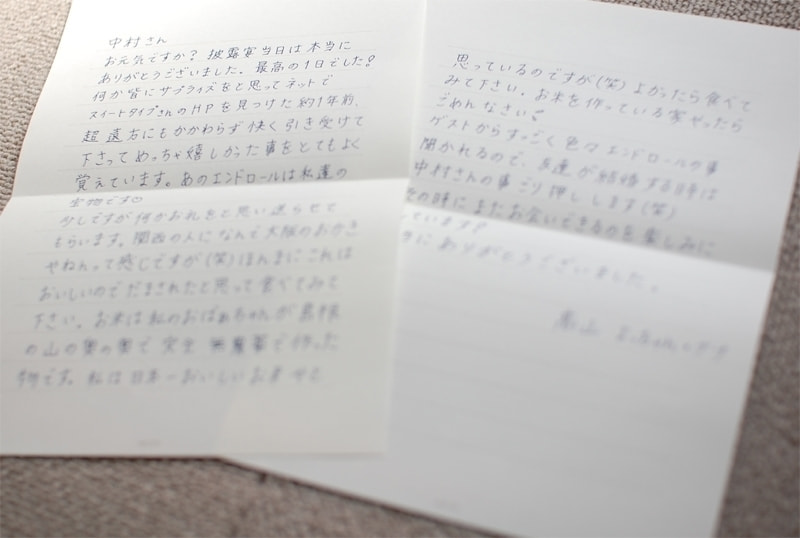 中村さん
お元気ですか？披露宴当日は本当に
ありがとうございました。最高の1日でした！
何か皆にサプライズをと思ってネットで
スイートタイプさんのHPを見つけた約1年前、
超遠方にもかかわらず快く引き受けて
下さってめっちゃ嬉しかった事をとてもよく
覚えています。あのエンドロールは私達の
宝物です♡
少しですが何かお礼をと思い送らせて
もらいます。関西の人になんで大阪のおかき
やねんって感じですが(笑)ほんまにこれは
おいしいのでだまされたと思って食べてみて
下さい。お米は私のおばあちゃんが島根
の山の奥の奥で完全無農薬で作った
物です。私は日本一おいしいお米やと
思っているのですが(笑)よかったら食べて
みて下さい。お米を作っている家やったら
ごめんなさい
ゲストからすっごく色々エンドロールの事
聞かれるので、友達が結婚する時は
中村さんの事ゴリ押しします(笑)
その時にまたお会いできるのを楽しみに
しています！
にありがとうございました。